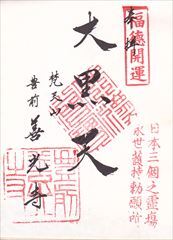 奉拝
福徳開運
日本三個之霊場
永世護持勅願所
大黒天
梵天山
豊前 善光寺